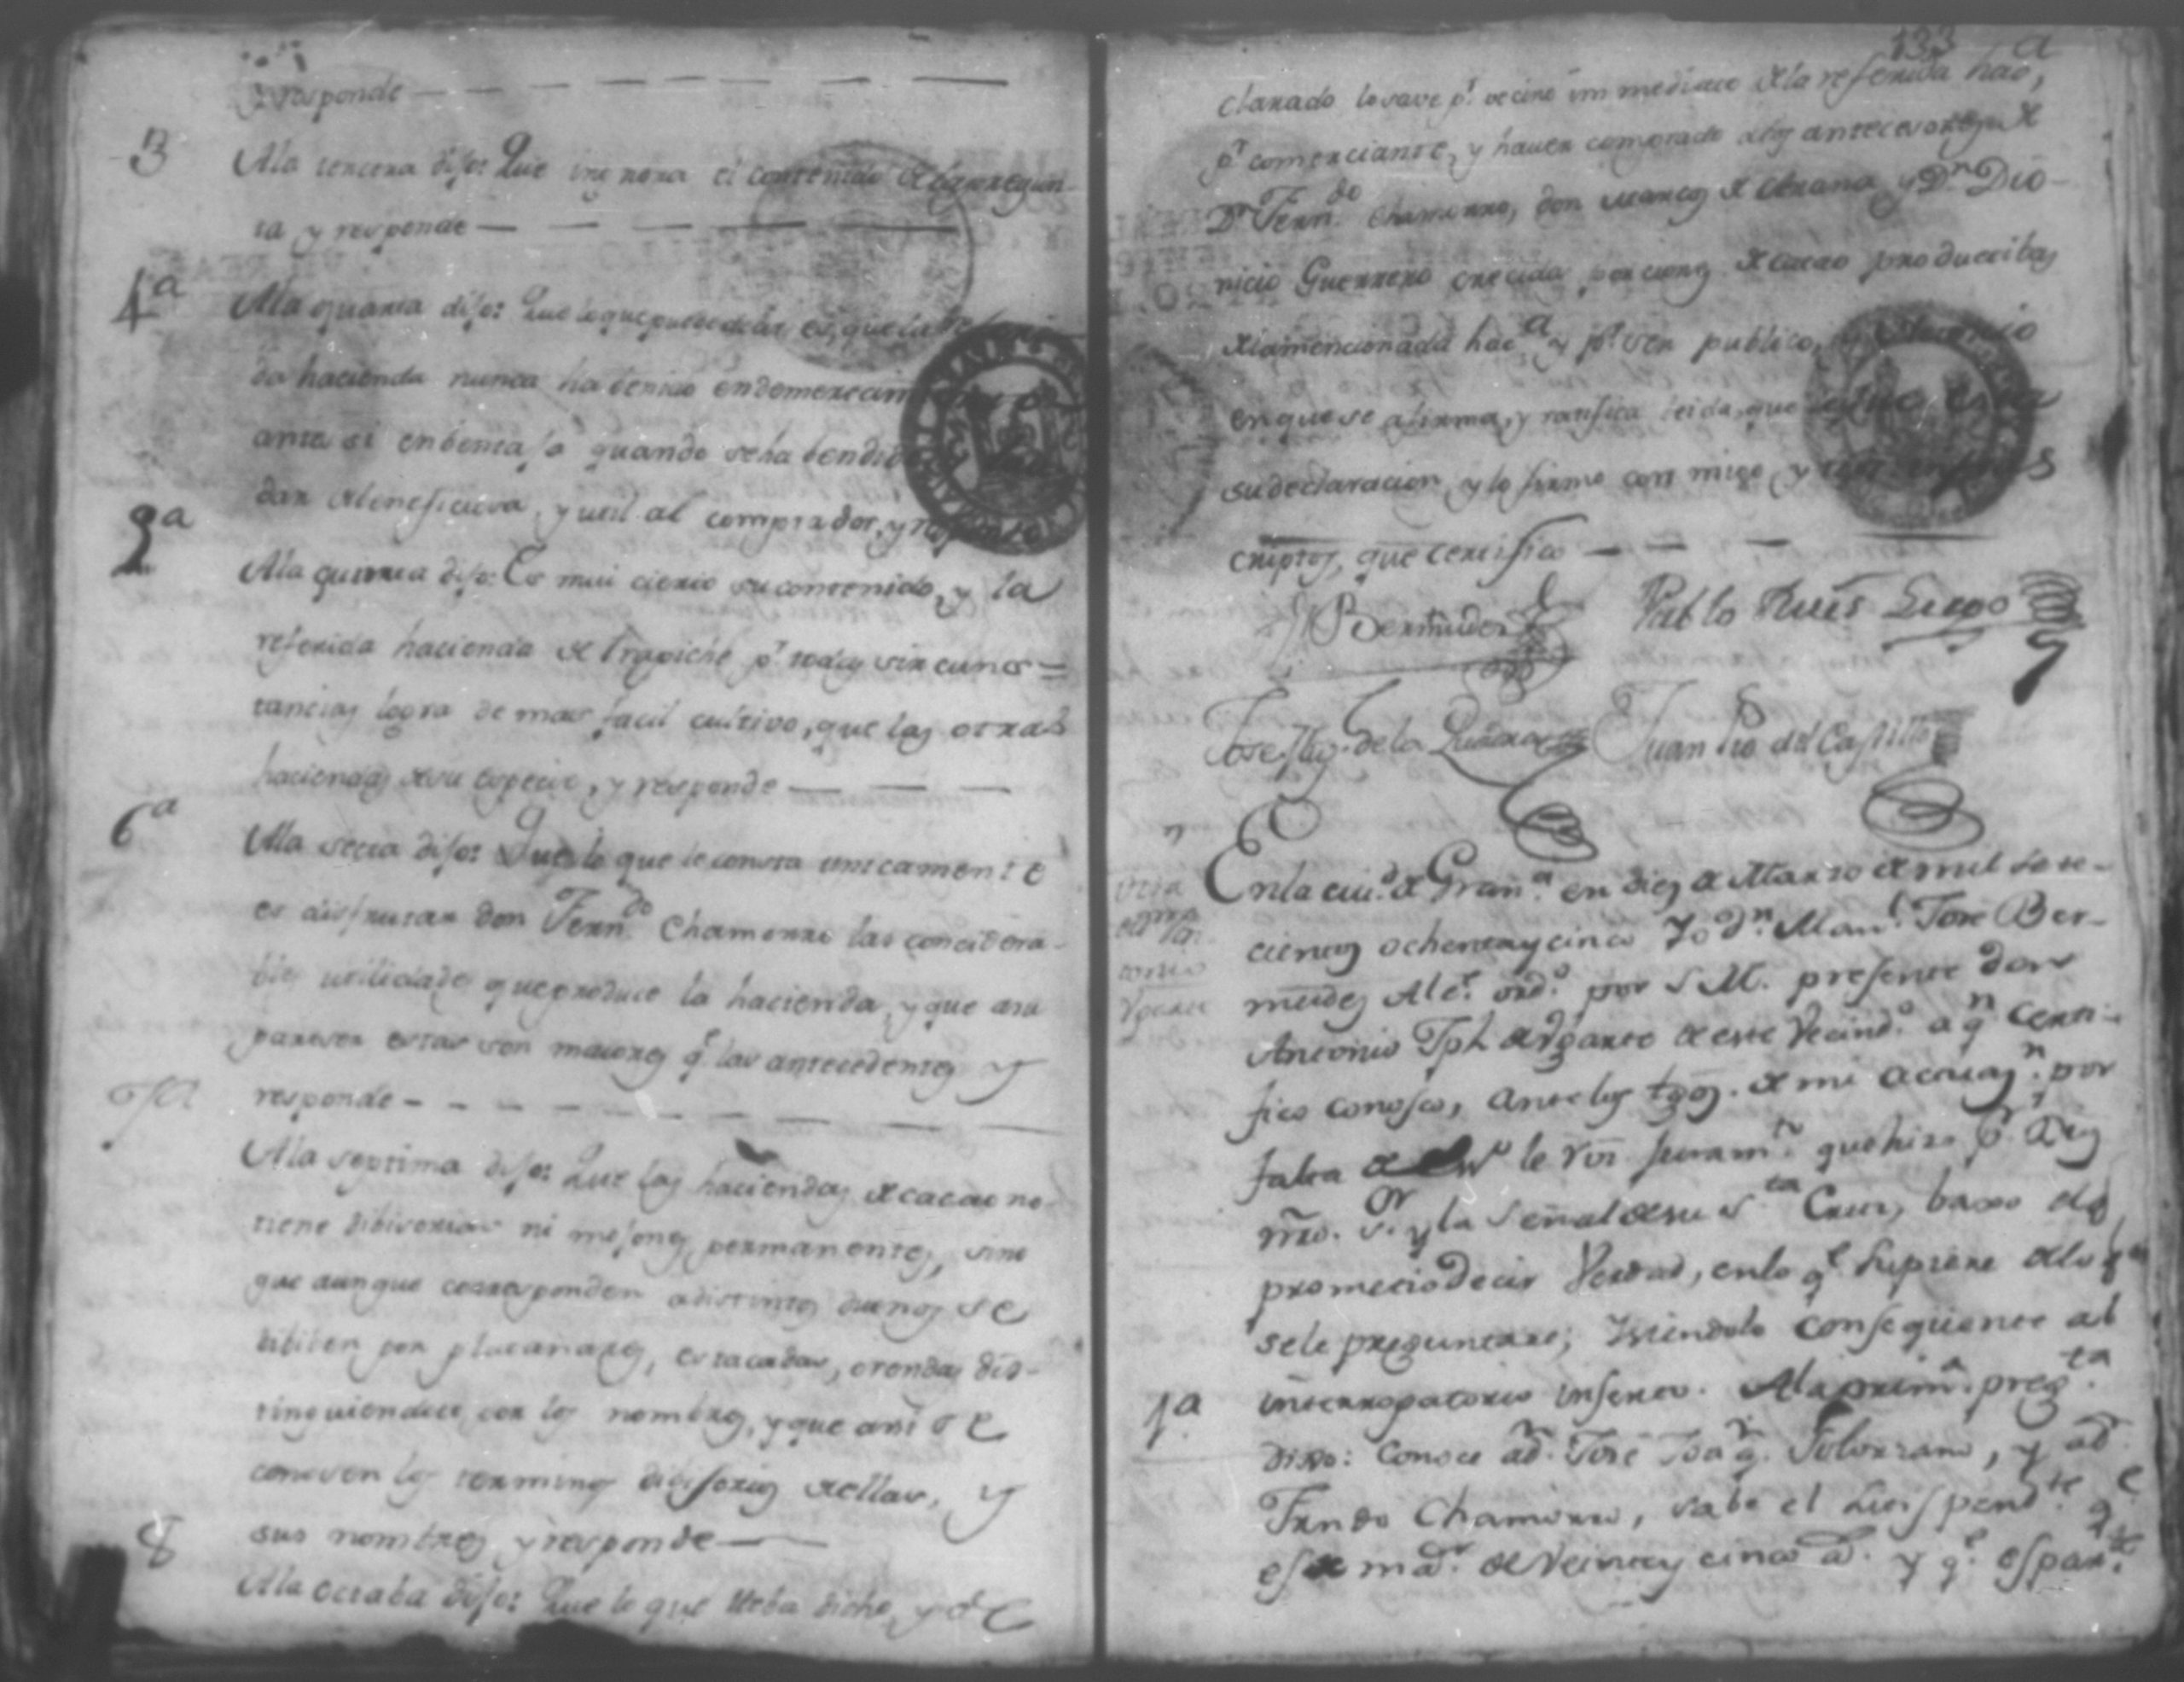 responde
3 Ala tercera dijo: Que ingnora el contenido de la pregun-
ta y responde
4a Ala quarta dijo: Que lo que puede desir es, que la
da hacienda nunca ha tenido
antes si en bentaja quando se ha bendido
dar veneficiosa, y util al comprador, y responde
Ala quinta dijo: Es mui cierto su contenido, y la
referida hacienda de trapiche pr. todas sircuns=
tancias logra de mas facil cultivo, que las otras
haciendas de su especie, y responde
6a Ala secta dijo: Que lo que le consta unicamente
es disfrutar don Ferndo. Chamorro las concidera-
bles utilidades que produce la hacienda, y que a su
pareser estas son maiores q. las antecedentes y
responde
Ala septima dijo: Que las haciendas de cacao no
tiene dibisorias ni mojones permanentes, sino
que aunque corresponden a distintos duenos se
dibiden por platanares, estacadas, o rondas dis-
tinguiendose con los nombres, y que asi se
conosen los terminos dibisorios de ellas, y
sus nombres y responde
8 Ala octaba dijo: Que lo que lleba dicho, y de
133
clarado lo save pr. vecino immediato de la referida hacda,
pr. comerciante, y haver comprado a los antecesores de
Dn Ferndo. Chamorro, don Marcos de Arana y Dn. Dio-
nicio Guerrero crecida porciones de cacao producitas
de la mencionada haca. y pr. ser publico,
en que se afirma, y ratifica leida, que le fue esta
su declaracion, y lo firmo con migo, y
criptos, que certifico
Bermudez Pablo Ruis
Jose de la Juan del Castillo
En la ciud. de Grana. en dies de Marzo de mil sete-
cientos ochenta y cinco Yo dn. Manl. Jose Ber-
mudes Alce. ordo. por S.M. presente don
Antonio Jph de Ugarte de este Vecindo. a qn. certi-
fico conosco, ante los tgos. de mi actuasn. por
falta de le resi. juramto. que hizo pr. Dios
nro. Sr. y la señal de su Sta Cruz, baxo del q.
prometio decir Verdad, en lo qe. supiere de lo qe.
sele preguntare; y siendolo conseqüente al
1a interrogatorio inserto. Ala prima. pregta.
dixo: Conoce a d. José Joaqn. Solorzano, y a d.
Frndo Chamorro, sabe el
es de mar. de Veinte y cinco a. y qe.